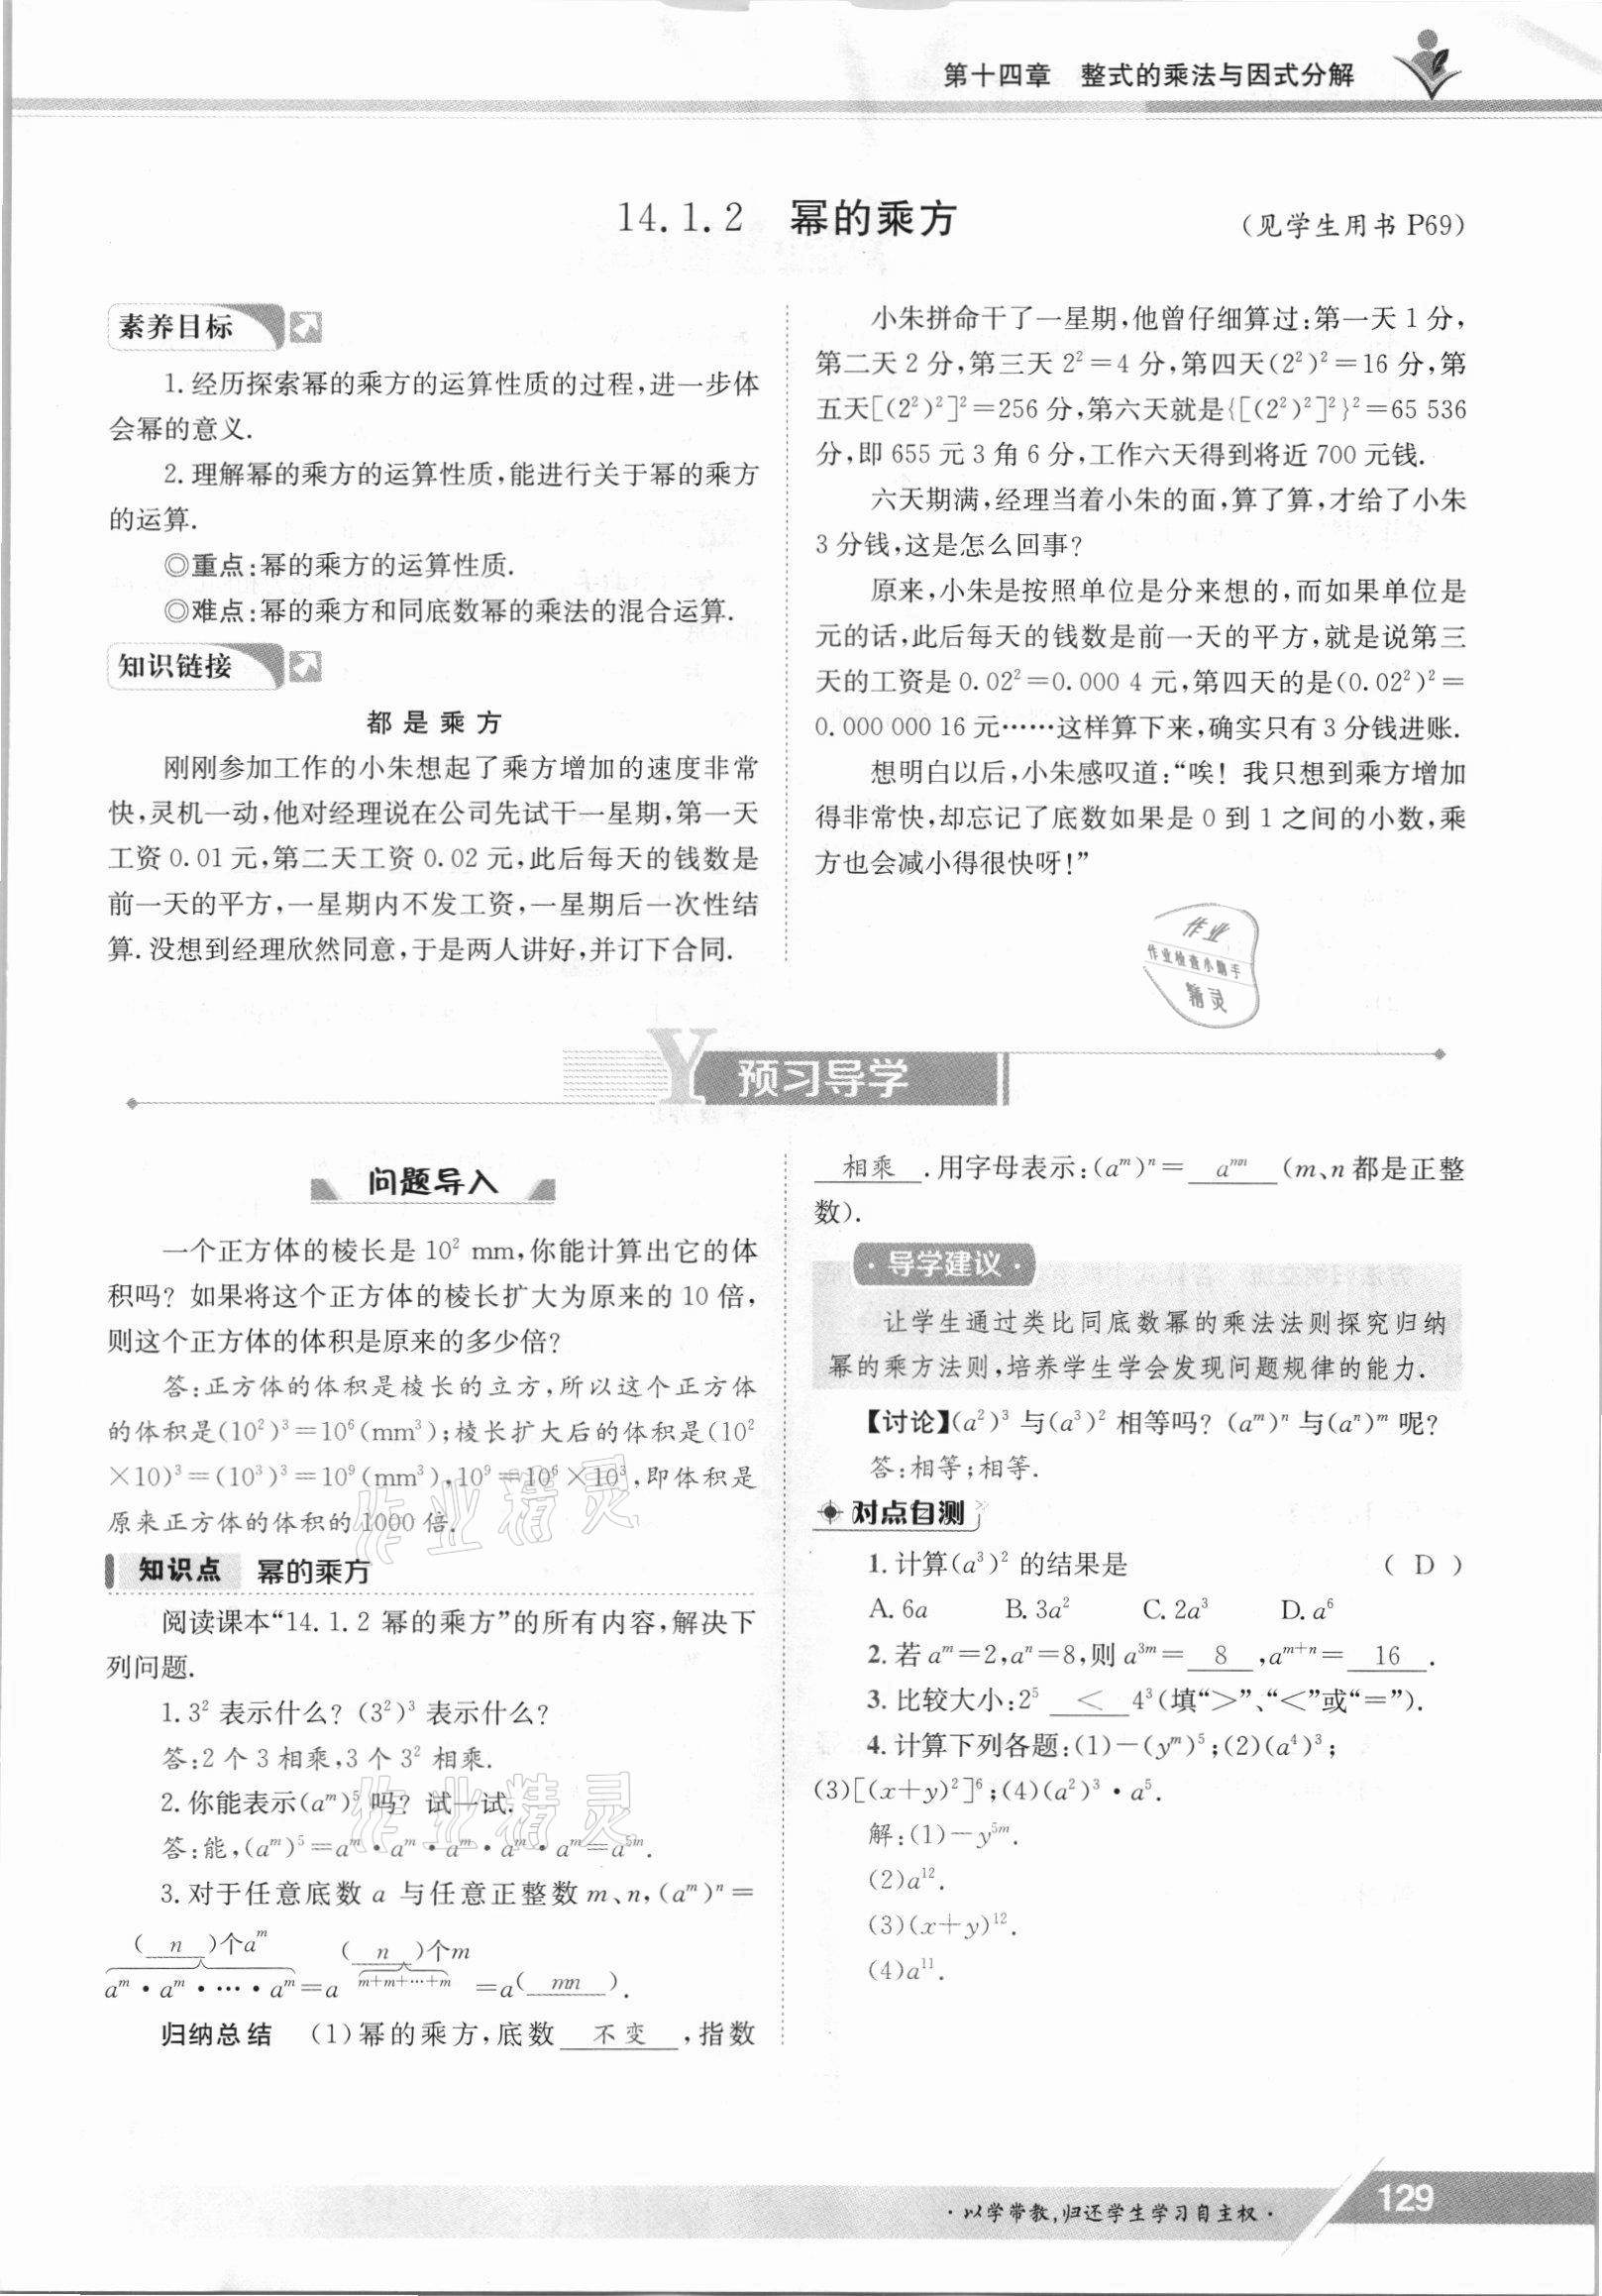 第十四章　整式的乘法与因式分解
14.1.2　幂的乘方
(见学生用书 P69)
素养目标
1.经历探索幂的乘方的运算性质的过程,进一步体
会幂的意义.
2.理解幂的乘方的运算性质,能进行关于幂的乘方
的运算.
◎重点:幂的乘方的运算性质.
◎难点:幂的乘方和同底数幂的乘法的混合运算.
知识链接
都是乘方
刚刚参加工作的小朱想起了乘方增加的速度非常
快,灵机一动,他对经理说在公司先试干一星期,第一天
工资0.01元,第二天工资0.02元,此后每天的钱数是
前一天的平方,一星期内不发工资,一星期后一次性结
算.没想到经理欣然同意,于是两人讲好,并订下合同.
小朱拼命干了一星期,他曾仔细算过:第一天1分,
第二天2分,第三天2²=4分,第四天(2²)²=16分,第
五天[(2²)²]²=256分,第六天就是{[(2²)²]²}²=65 536
分,即655元3角6分,工作六天得到将近700元钱.
六天期满,经理当着小朱的面,算了算,才给了小朱
3分钱,这是怎么回事?
原来,小朱是按照单位是分来想的,而如果单位是
元的话,此后每天的钱数是前一天的平方,就是说第三
天的工资是0.02²=0.000 4元,第四天的是(0.02²)²=
0.000 000 16元……这样算下来,确实只有3分钱进账.
想明白以后,小朱感叹道:“唉!我只想到乘方增加
得非常快,却忘记了底数如果是0到1之间的小数,乘
方也会减小得很快呀!”
作业
作业检查小助手
精灵
Y 预习导学
问题导入
一个正方体的棱长是10² mm,你能计算出它的体
积吗?如果将这个正方体的棱长扩大为原来的10倍,
则这个正方体的体积是原来的多少倍?
答:正方体的体积是棱长的立方,所以这个正方体
的体积是(10²)³=10⁶(mm³);棱长扩大后的体积是(10²
×10)³=(10³)³=10⁹(mm³),10⁹=10⁶×10³,即体积是
原来正方体的体积的1000倍.
作业精灵
知识点 幂的乘方
阅读课本“14.1.2幂的乘方”的所有内容,解决下
列问题.
1.3²表示什么?(3²)³表示什么?
答:2个3相乘,3个3²相乘.
2.你能表示(aᵐ)⁵吗?试一试.
答:能,(aᵐ)⁵=aᵐ·aᵐ·aᵐ·aᵐ·aᵐ=a⁵ᵐ.
作业精灵
3.对于任意底数a与任意正整数m、n,(aᵐ)ⁿ=
( n )个aᵐ ( n )个m
aᵐ·aᵐ·…·aᵐ=a m+m+…+m =a( mn ).
归纳总结 (1)幂的乘方,底数 不变 ,指数
相乘 .用字母表示:(aᵐ)ⁿ= aᵐⁿ (m、n都是正整
数).
·导学建议·
让学生通过类比同底数幂的乘法法则探究归纳
幂的乘方法则,培养学生学会发现问题规律的能力.
【讨论】(a²)³与(a³)²相等吗?(aᵐ)ⁿ与(aⁿ)ᵐ呢?
答:相等;相等.
对点自测
1.计算(a³)²的结果是 ( D )
A.6a B.3a² C.2a³ D.a⁶
2.若aᵐ=2,aⁿ=8,则a³ᵐ= 8 ,aᵐ⁺ⁿ= 16 .
3.比较大小:2⁵ < 4³(填“>”、“<”或“=”).
4.计算下列各题:(1)-(yᵐ)⁵;(2)(a⁴)³;
(3)[(x+y)²]⁶;(4)(a²)³·a⁵.
解:(1)-y⁵ᵐ.
(2)a¹².
(3)(x+y)¹².
(4)a¹¹.
·以学带教,归还学生学习自主权·
129